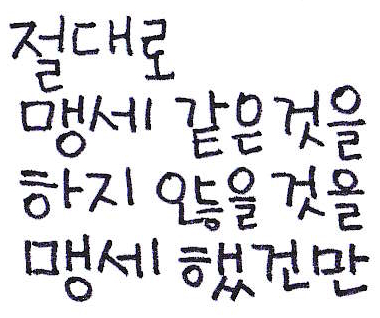 절대로
맹세 같은것을
하지 않을 것을
맹세 했건만